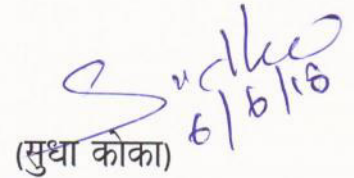 Sudha
6/6/16
(सुधा कोका)